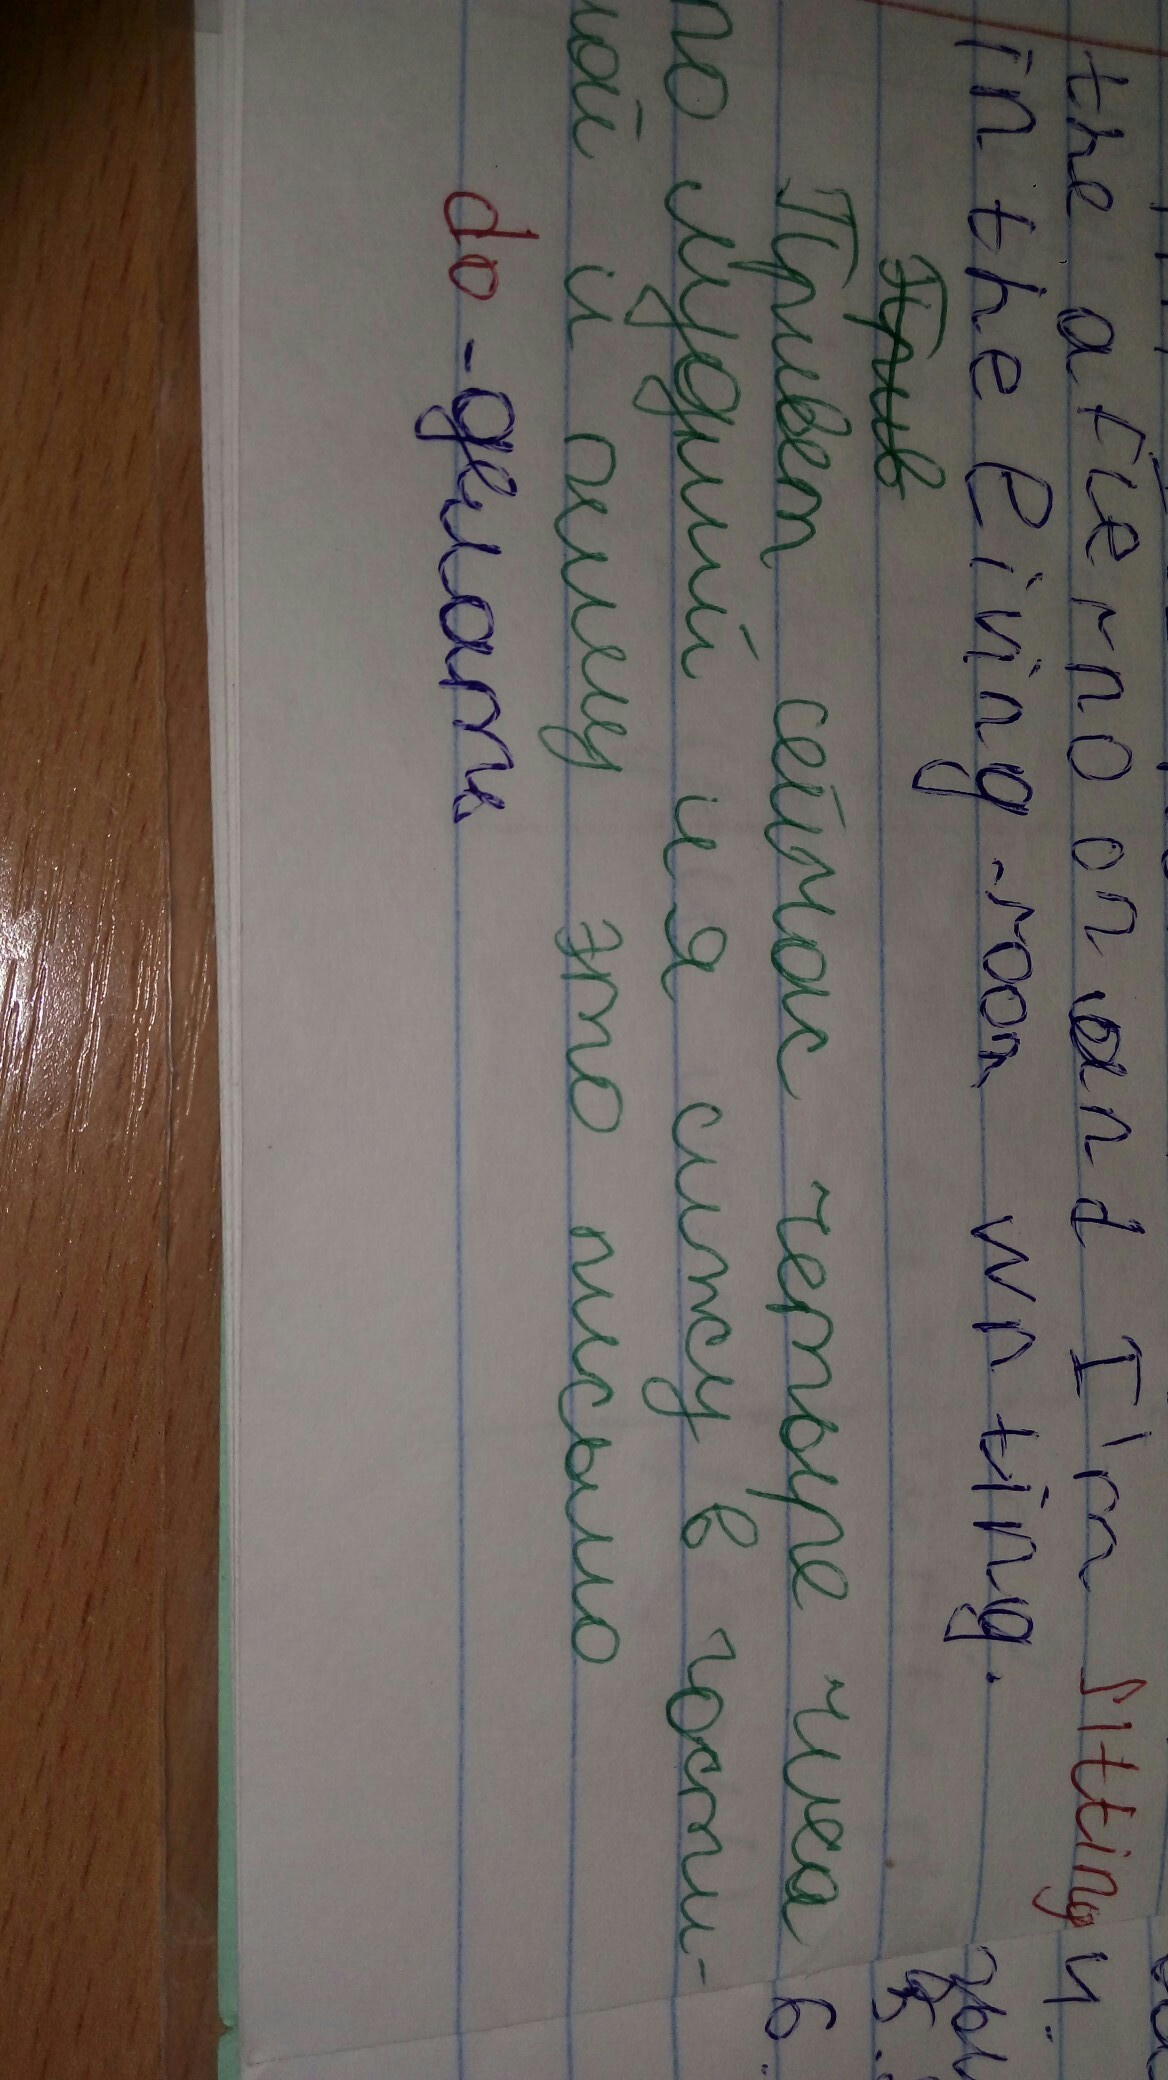 the afternoon and I'm sitting
in the living-room writing.
Прив
Привет сейчас четыре часа
по лудний и я сижу в гости-
ной и пишу это письмо
do - делать
4.
5.
6.